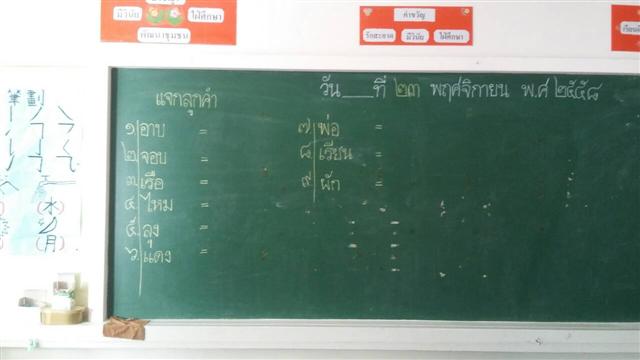 มีวินัย ใฝ่ศึกษา
พัฒนาชุมชน
คำขวัญ
รักสะอาด มีวินัย ใฝ่ศึกษา
筆劃
水
月
วัน ___ ที่ ๒๓ พฤศจิกายน พ.ศ ๒๕๕๘
แจกลูกคำ
๑ อาบ =
๒ จอบ =
๓ เรือ =
๔ ไหม =
๕ ลุง =
๖ แดง =
๗ พ่อ =
๘ เรียน =
๙ ผัก =